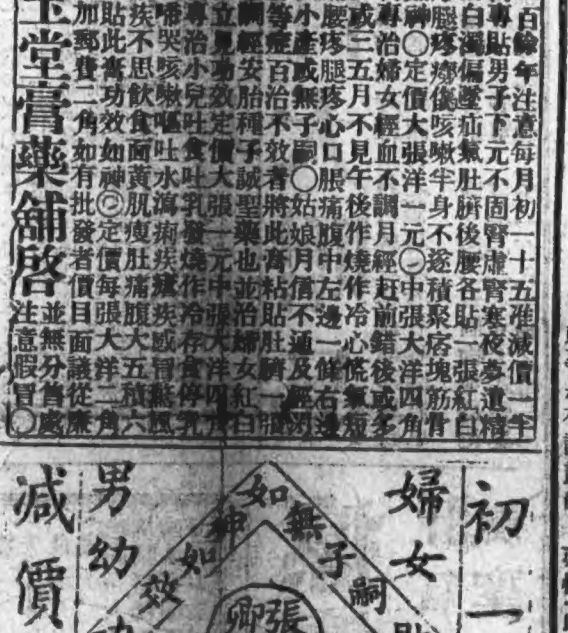 百餘年注意每月初一十五准減價一半
專貼男子下元不固腎虛腎寒夜夢遺精
白濁偏墜疝氣肚臍後腰各貼一張紅白
腿疼癱傷咳嗽半身不遂積聚痞塊筋骨
神〇定價大張洋一元〇中張大洋四角
專治婦女經血不調月經赶前錯後或多
或三五月不見午後作燒作冷心慌氣短
腰疼腿疼心口脹痛腹中左邊一條右邊
小產或無子嗣〇姑娘月信不通及經閉
等症百治不效者將此膏粘貼肚臍一張
調經安胎種子誠聖藥也並治婦女紅白
立見功效定價大張一元中張大洋四角
專治小兒吐食吐乳發燒作冷存食停乳
啼哭咳嗽嘔吐水瀉痢疾瘧疾感冒
疾不思飲食面黃肌瘦肚痛腹大五積六
貼此膏功效如神〇定價每張大洋二角
加郵費二角如有批發者價目面議從廉
玉堂膏藥舖啓
並無分舊處
注意假冒〇
初一
婦女
如無子嗣
神如效
張
卿
男幼
減價